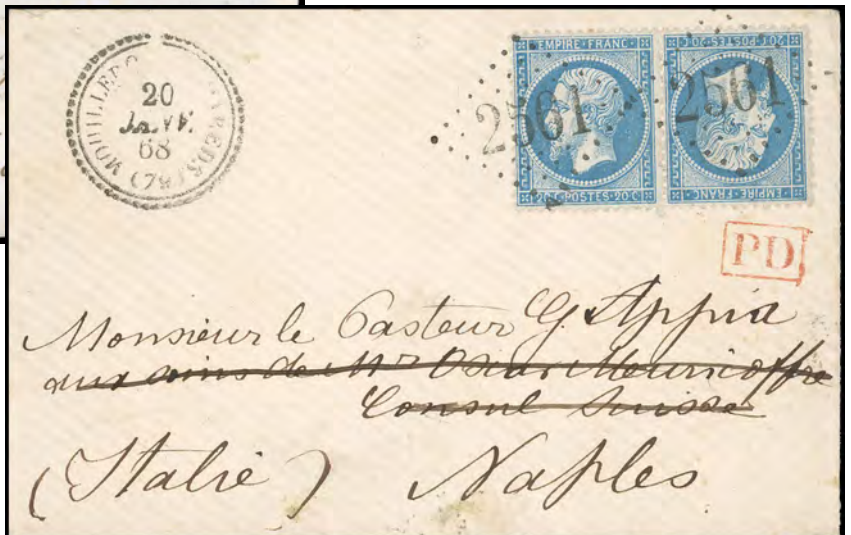 20
JANV.
68
(79)
EMPIRE FRANC
20C POSTES 20C
2561
EMPIRE FRANC
20C POSTES 20C
2561
PD
Monsieur le Pasteur G. Appia
aux soins de Mr Oscar Meuricoffre
Consul Suisse
(Italie) Naples